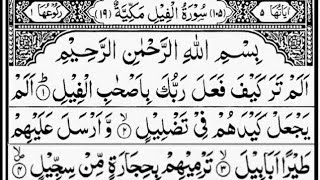 اٰیَاتُهَا ٥ (١٠٥) سُوْرَةُ الْفِیْلِ مَكِّیَّةٌ (١٩) رُكُوْعُهَا ١
بِسْمِ اللهِ الرَّحْمٰنِ الرَّحِیْمِ
اَلَمْ تَرَ كَیْفَ فَعَلَ رَبُّكَ بِاَصْحٰبِ الْفِیْلِ ١ اَلَمْ
یَجْعَلْ كَیْدَهُمْ فِیْ تَضْلِیْلٍ ٢ وَّ اَرْسَلَ عَلَیْهِمْ
طَیْرًا اَبَابِیْلَ ٣ تَرْمِیْهِمْ بِحِجَارَةٍ مِّنْ سِجِّیْلٍ ٤